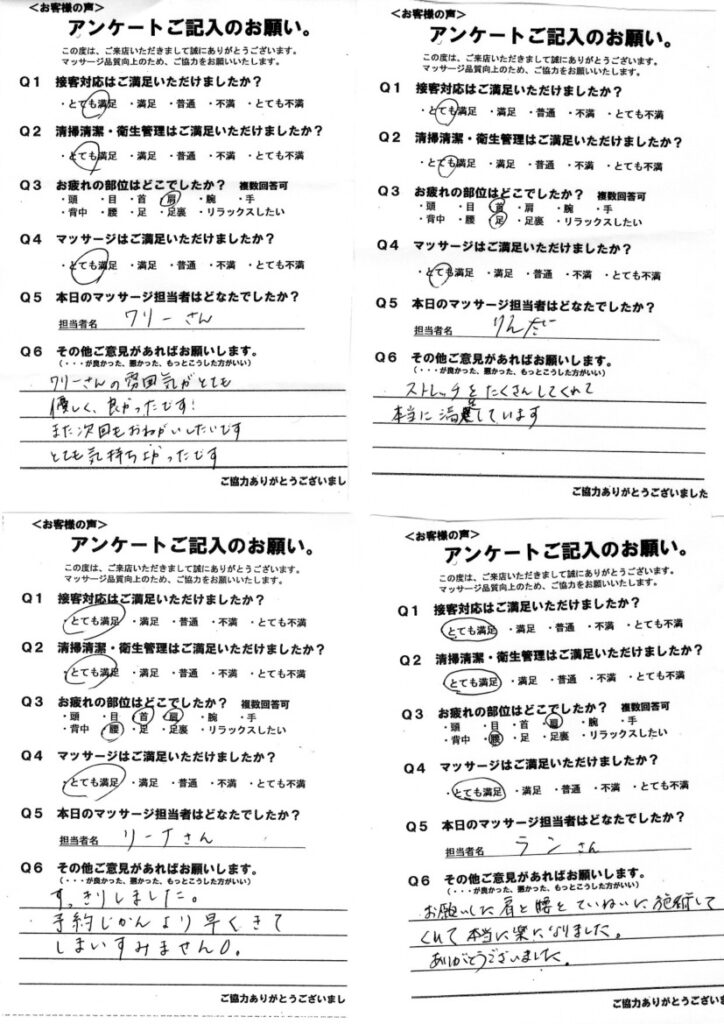 <お客様の声>
アンケートご記入のお願い。
この度は、ご来店いただきまして誠にありがとうございます。
マッサージ品質向上のため、ご協力をお願いいたします。
Q1 接客対応はご満足いただけましたか？
・とても満足 ・満足 ・普通 ・不満 ・とても不満
Q2 清掃清潔・衛生管理はご満足いただけましたか？
・とても満足 ・満足 ・普通 ・不満 ・とても不満
Q3 お疲れの部位はどこでしたか？ 複数回答可
・頭 ・目 ・首 ・肩 ・腕 ・手
・背中 ・腰 ・足 ・足裏 ・リラックスしたい
Q4 マッサージはご満足いただけましたか？
・とても満足 ・満足 ・普通 ・不満 ・とても不満
Q5 本日のマッサージ担当者はどなたでしたか？
担当者名 クリーさん
Q6 その他ご意見があればお願いします。
（・・・が良かった、悪かった、もっとこうした方がいい）
クリーさんの雰囲気がとても
優しく、良かったです！
また次回もおねがいしたいです
とても気持ち良かったです
ご協力ありがとうございまし
<お客様の声>
アンケートご記入のお願い。
この度は、ご来店いただきまして誠にありがとうございます。
マッサージ品質向上のため、ご協力をお願いいたします。
Q1 接客対応はご満足いただけましたか？
・とても満足 ・満足 ・普通 ・不満 ・とても不満
Q2 清掃清潔・衛生管理はご満足いただけましたか？
・とても満足 ・満足 ・普通 ・不満 ・とても不満
Q3 お疲れの部位はどこでしたか？ 複数回答可
・頭 ・目 ・首 ・肩 ・腕 ・手
・背中 ・腰 ・足 ・足裏 ・リラックスしたい
Q4 マッサージはご満足いただけましたか？
・とても満足 ・満足 ・普通 ・不満 ・とても不満
Q5 本日のマッサージ担当者はどなたでしたか？
担当者名
Q6 その他ご意見があればお願いします。
（・・・が良かった、悪かった、もっとこうした方がいい）
ストレッチをたくさんしてくれて
本当に満足しています
ご協力ありがとうございました
<お客様の声>
アンケートご記入のお願い。
この度は、ご来店いただきまして誠にありがとうございます。
マッサージ品質向上のため、ご協力をお願いいたします。
Q1 接客対応はご満足いただけましたか？
・とても満足 ・満足 ・普通 ・不満 ・とても不満
Q2 清掃清潔・衛生管理はご満足いただけましたか？
・とても満足 ・満足 ・普通 ・不満 ・とても不満
Q3 お疲れの部位はどこでしたか？ 複数回答可
・頭 ・目 ・首 ・肩 ・腕 ・手
・背中 ・腰 ・足 ・足裏 ・リラックスしたい
Q4 マッサージはご満足いただけましたか？
・とても満足 ・満足 ・普通 ・不満 ・とても不満
Q5 本日のマッサージ担当者はどなたでしたか？
担当者名 リーナさん
Q6 その他ご意見があればお願いします。
（・・・が良かった、悪かった、もっとこうした方がいい）
すっきりしました。
予約じかんより早くきて
しまいすみません0。
ご協力ありがとうございまし
<お客様の声>
アンケートご記入のお願い。
この度は、ご来店いただきまして誠にありがとうございます。
マッサージ品質向上のため、ご協力をお願いいたします。
Q1 接客対応はご満足いただけましたか？
・とても満足 ・満足 ・普通 ・不満 ・とても不満
Q2 清掃清潔・衛生管理はご満足いただけましたか？
・とても満足 ・満足 ・普通 ・不満 ・とても不満
Q3 お疲れの部位はどこでしたか？ 複数回答可
・頭 ・目 ・首 ・肩 ・腕 ・手
・背中 ・腰 ・足 ・足裏 ・リラックスしたい
Q4 マッサージはご満足いただけましたか？
・とても満足 ・満足 ・普通 ・不満 ・とても不満
Q5 本日のマッサージ担当者はどなたでしたか？
担当者名 ランさん
Q6 その他ご意見があればお願いします。
（・・・が良かった、悪かった、もっとこうした方がいい）
お願いした肩と腰とていねいに施術して
くれて本当に楽になりました。
ありがとうございました。
ご協力ありがとうございま